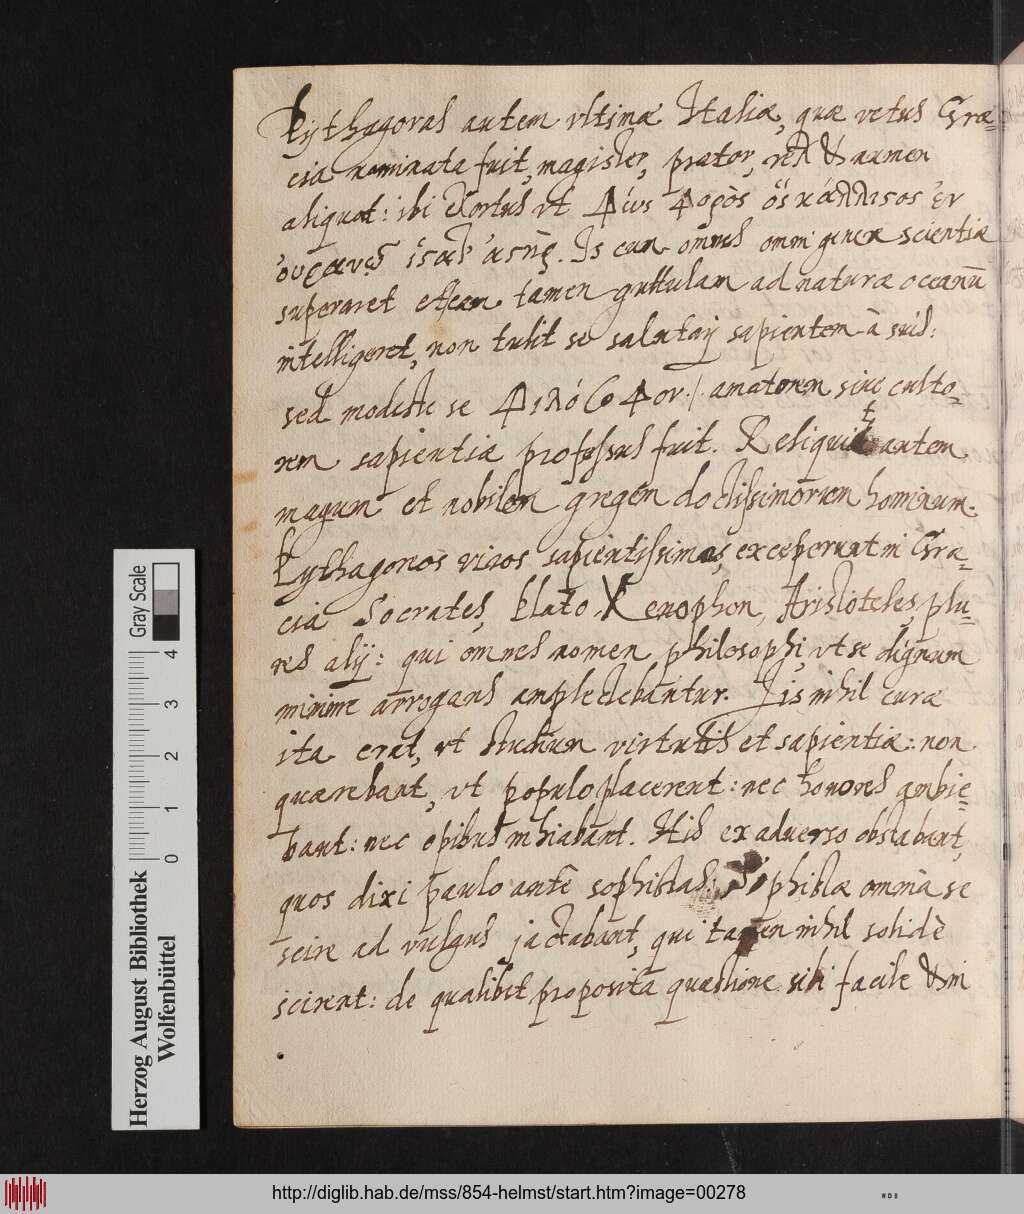 Pythagoras autem vltimæ Italiæ, quæ vetus Græ=
cia nominata fuit, magister, prætor, rex & numen
aliquot: ibi exortus vt
superaret etiam tamen guttulam ad naturæ oceanū
intelligeret, non tulit se salutarj sapientem à suis:
sed modeste se amatorem siue culto=
rem sapientiæ professus fuit. Reliquit autem
magnum et nobilem gregem doctissimorum hominum.
Pythagoreos viros sapientissimos, exceperunt in Græ=
cia Socrates, Plato, Xenophon, Aristoteles, plu=
res alij: qui omnes nomen philosophi, vt se dignum
minime arrogans amplectebantur. Jis nihil curæ
ita erat, vt studium virtutis et sapientiæ: non
quærebant, vt populo placerent: nec honores ambie=
bant: nec opibus inhiabant. His ex aduerso obstabant,
quos dixi paulo antè sophistas: Sophistæ omnia se
scire ad vulgus jactabant, qui tamen nihil solidè
scirent: de qualibet proposita quæstione sibi facile & in
Gray Scale
4
3
2
1
0
Herzog August Bibliothek
Wolfenbüttel
http://diglib.hab.de/mss/854-helmst/start.htm?image=00278